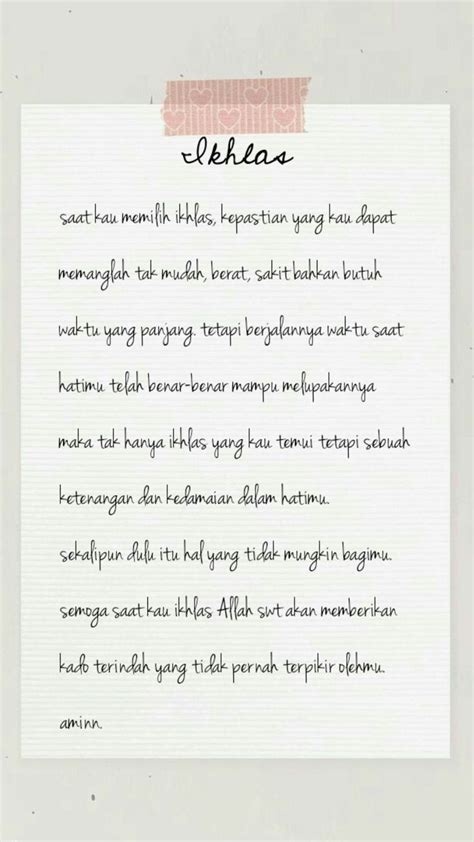 Ikhlas
saat kau memilih ikhlas, kepastian yang kau dapat
memanglah tak mudah, berat, sakit bahkan butuh
waktu yang panjang. tetapi berjalannya waktu saat
hatimu telah benar-benar mampu melupakannya
maka tak hanya ikhlas yang kau temui tetapi sebuah
ketenangan dan kedamaian dalam hatimu.
sekalipun dulu itu hal yang tidak mungkin bagimu.
semoga saat kau ikhlas Allah swt akan memberikan
kado terindah yang tidak pernah terpikir olehmu.
aminn.